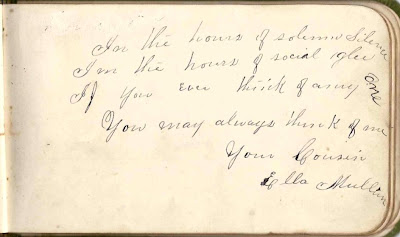 In the hours of solemn Silence
I'm the hours of social glee
If you ever think of any one
You may always think of me
Your Cousin
Ella Mullin